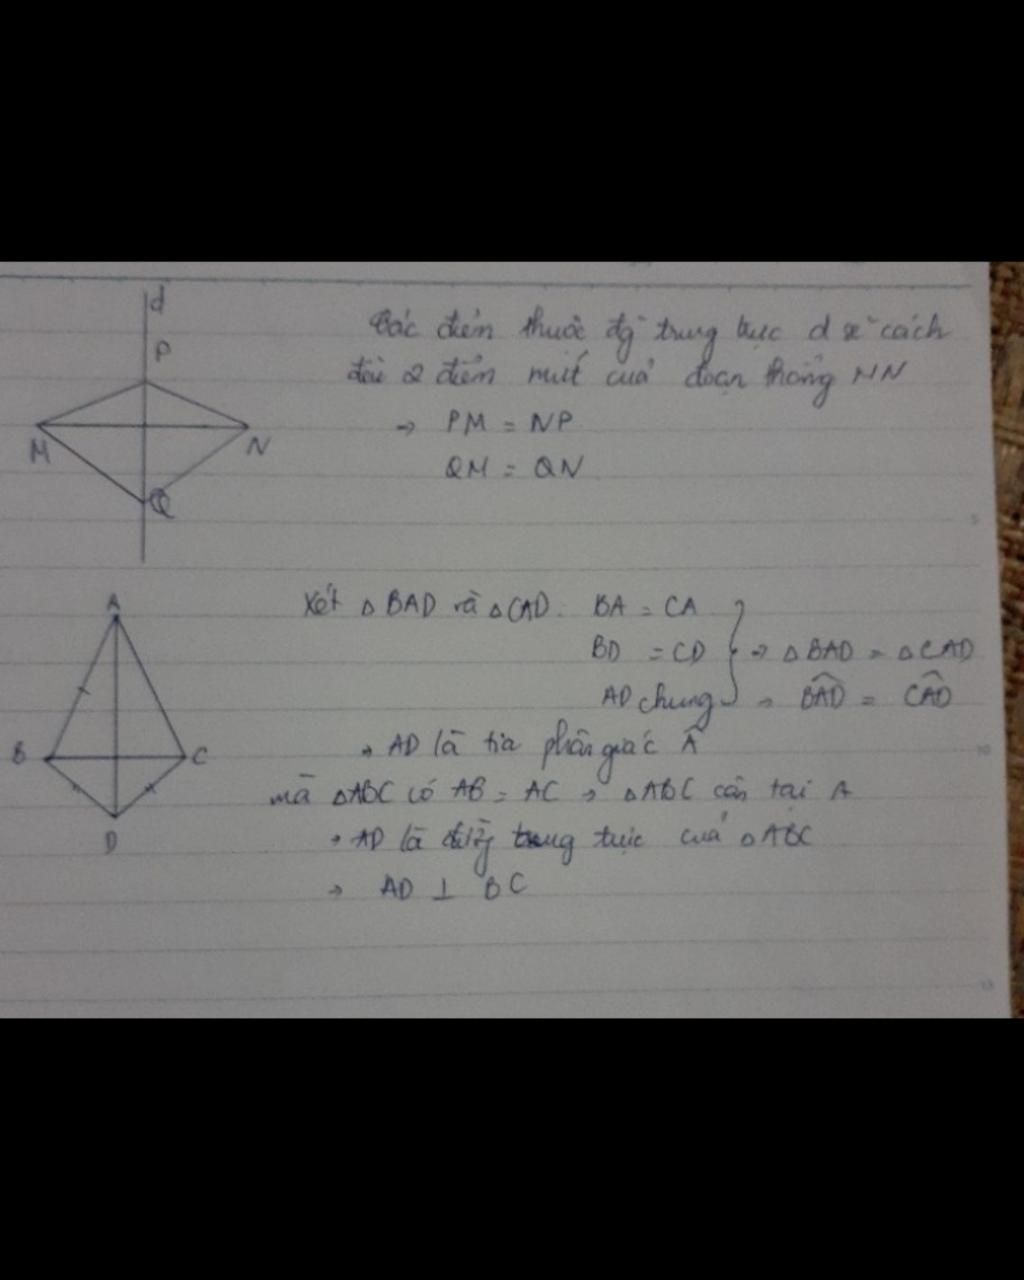 d
P
M
N
Q
Các điểm thuộc đg trung trực d sẽ cách
đều 2 điểm mút của đoạn thẳng MN
→ PM = NP
QM = QN
A
B
C
D
Xét △BAD và △CAD: BA = CA
BD = CD → △BAD = △CAD
AD chung → BAD = CAD
→ AD là tia phân giác Â
mà △ABC có AB = AC → △ABC cân tại A
→ AD là đường trung trực của △ABC
→ AD ⊥ BC
5
10